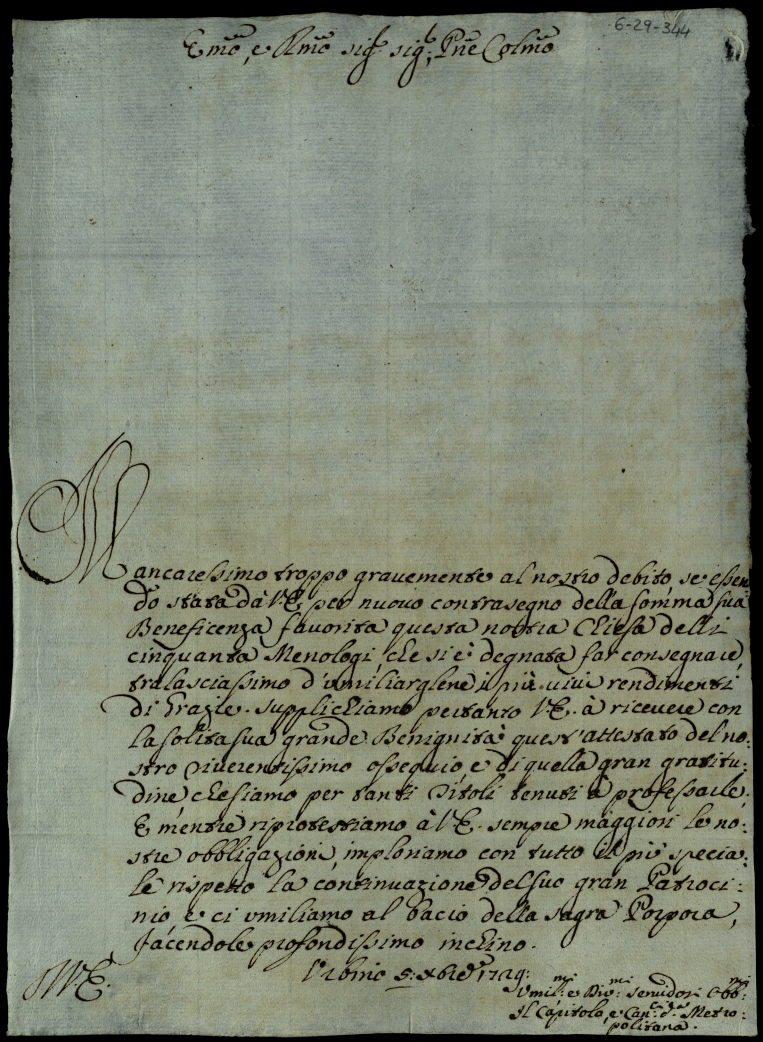 6-29-344
Emo, e Rmo sig.r sig.r Pne Colmo
Mancaressimo troppo gravemente al nostro debito se essen
do stata da V.E. per nuovo contrasegno della somma sua
Beneficenza favorita questa nostra Chiesa delli
cinquanta Menologi, che si è degnata far consegnare,
tralasciassimo d'umiliarglene i più vivi rendimenti
di grazie. Supplichiamo pertanto V.E. à ricevere con
la solita sua grande Benignità quest'attestato del no:
stro riverentissimo ossequio, e di quella gran gratitu:
dine, che siamo per tanti Titoli tenuti à professarle.
E mentre riprotestiamo à V.E. sempre maggiori le no:
stre obbligazioni, imploriamo con tutto il più specia:
le rispetto la continuazione del suo gran Patroci:
nio, e ci umiliamo al bacio della sagra Porpora,
facendole profondissimo inchino.
Urbino 5: xbre 1729:
Umil.mi e Div.mi Servidori Obb:mi
Il Capitolo, e Can.ci d.a Metro:
politana.